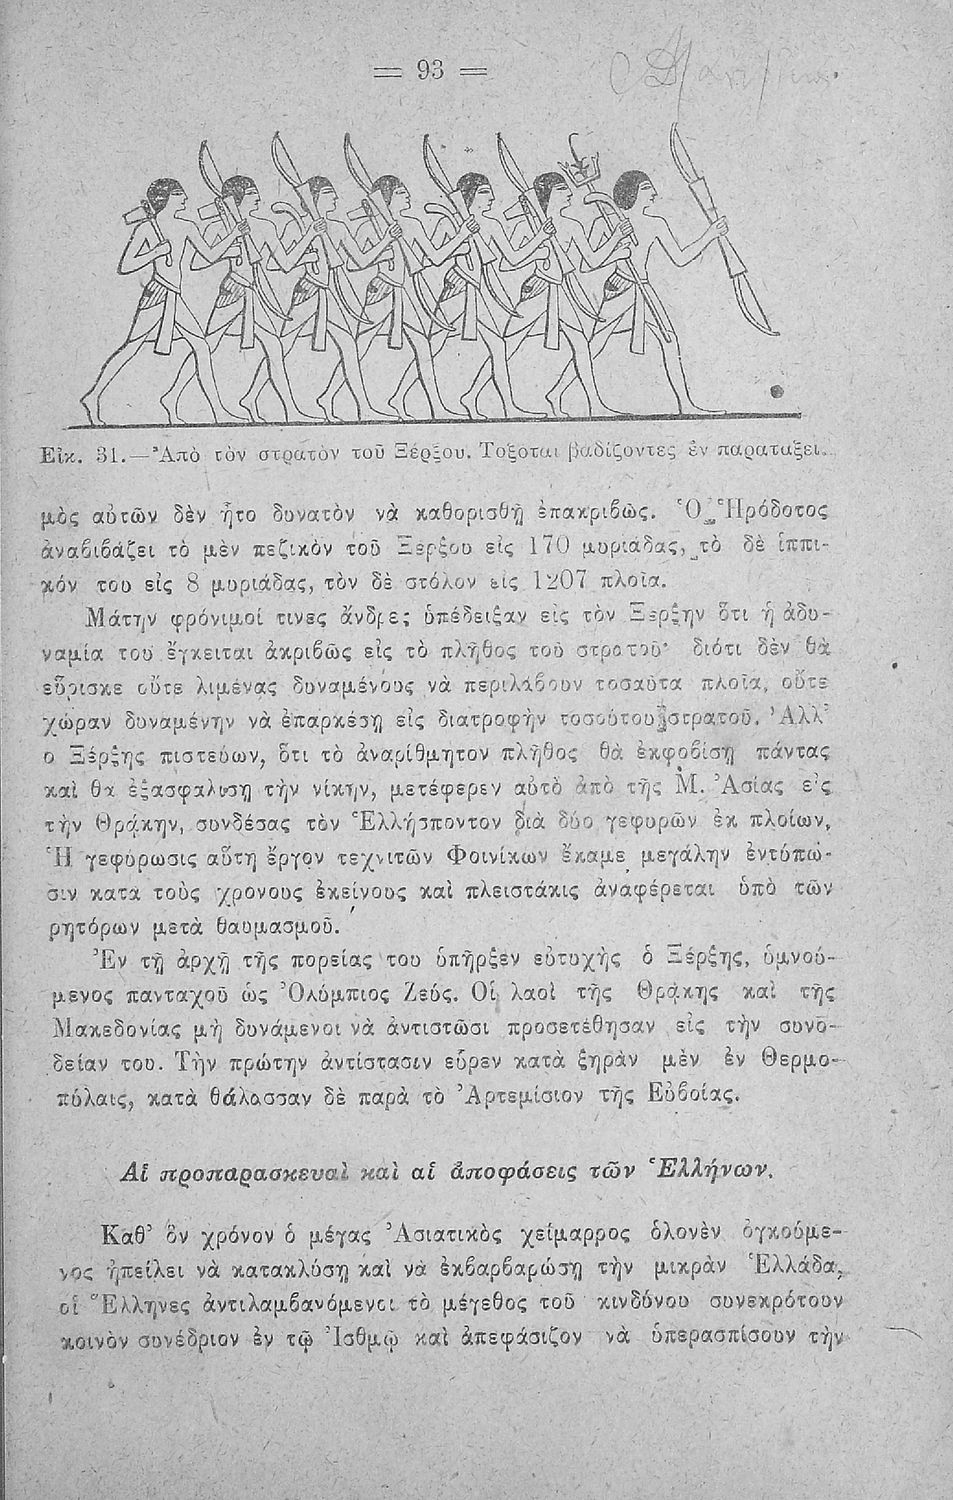 = 93 =
Εἰκ. 31.—Ἀπὸ τὸν στρατὸν τοῦ Ξέρξου. Τοξόται βαδίζοντες ἐν παρατάξει.
μὸς αὐτῶν δὲν ἦτο δυνατὸν νὰ καθορισθῇ ἐπακριβῶς. Ὁ Ἡρόδοτος
ἀναβιβάζει τὸ μὲν πεζικὸν τοῦ Ξέρξου εἰς 170 μυριάδας, τὸ δὲ ἱππι-
κόν του εἰς 8 μυριάδας, τὸν δὲ στόλον εἰς 1207 πλοῖα.
Μάτην φρόνιμοί τινες ἄνδρες ὑπέδειξαν εἰς τὸν Ξέρξην ὅτι ἡ ἀδυ-
ναμία του ἔγκειται ἀκριβῶς εἰς τὸ πλῆθος τοῦ στρατοῦ· διότι δὲν θὰ
εὕρισκε οὔτε λιμένας δυναμένους νὰ περιλάβουν τοσαῦτα πλοῖα, οὔτε
χώραν δυναμένην νὰ ἐπαρκέσῃ εἰς διατροφὴν τοσούτου στρατοῦ. Ἀλλ’
ο Ξέρξης πιστεύων, ὅτι τὸ ἀναρίθμητον πλῆθος θὰ ἐκφοβίσῃ πάντας
καὶ θα ἐξασφαλίσῃ τὴν νίκην, μετέφερεν αὐτὸ ἀπὸ τῆς Μ. Ἀσίας εἰς
τὴν Θράκην, συνδέσας τὸν Ἑλλήσποντον διὰ δύο γεφυρῶν ἐκ πλοίων,
Ἡ γεφύρωσις αὕτη ἔργον τεχνιτῶν Φοινίκων ἔκαμε μεγάλην ἐντύπω-
σιν κατα τοὺς χρονους ἐκείνους καὶ πλειστάκις ἀναφέρεται ὑπὸ τῶν
ρητόρων μετὰ θαυμασμοῦ.
Ἐν τῇ ἀρχῇ τῆς πορείας του ὑπῆρξεν εὐτυχὴς ὁ Ξέρξης, ὑμνού-
μενος πανταχοῦ ὡς Ὀλύμπιος Ζεύς. Οἱ λαοὶ τῆς Θράκης καὶ τῆς
Μακεδονίας μὴ δυνάμενοι νὰ ἀντιστῶσι προσετέθησαν εἰς τὴν συνο-
δείαν του. Τὴν πρώτην ἀντίστασιν εὗρεν κατὰ ξηρὰν μὲν ἐν Θερμο-
πύλαις, κατὰ θάλασσαν δὲ παρὰ τὸ Ἀρτεμίσιον τῆς Εὐβοίας.
Αἱ προπαρασκευαὶ καὶ αἱ ἀποφάσεις τῶν Ἑλλήνων.
Καθ’ ὃν χρόνον ὁ μέγας Ἀσιατικὸς χείμαρρος ὁλονὲν ὀγκούμε-
νος ἠπείλει νὰ κατακλύσῃ καὶ νὰ ἐκβαρβαρώσῃ τὴν μικρὰν Ἑλλάδα,
οἱ Ἕλληνες ἀντιλαμβανόμενοι τὸ μέγεθος τοῦ κινδύνου συνεκρότουν
κοινὸν συνέδριον ἐν τῷ Ἰσθμῷ καὶ ἀπεφάσιζον νὰ ὑπερασπίσουν τὴν